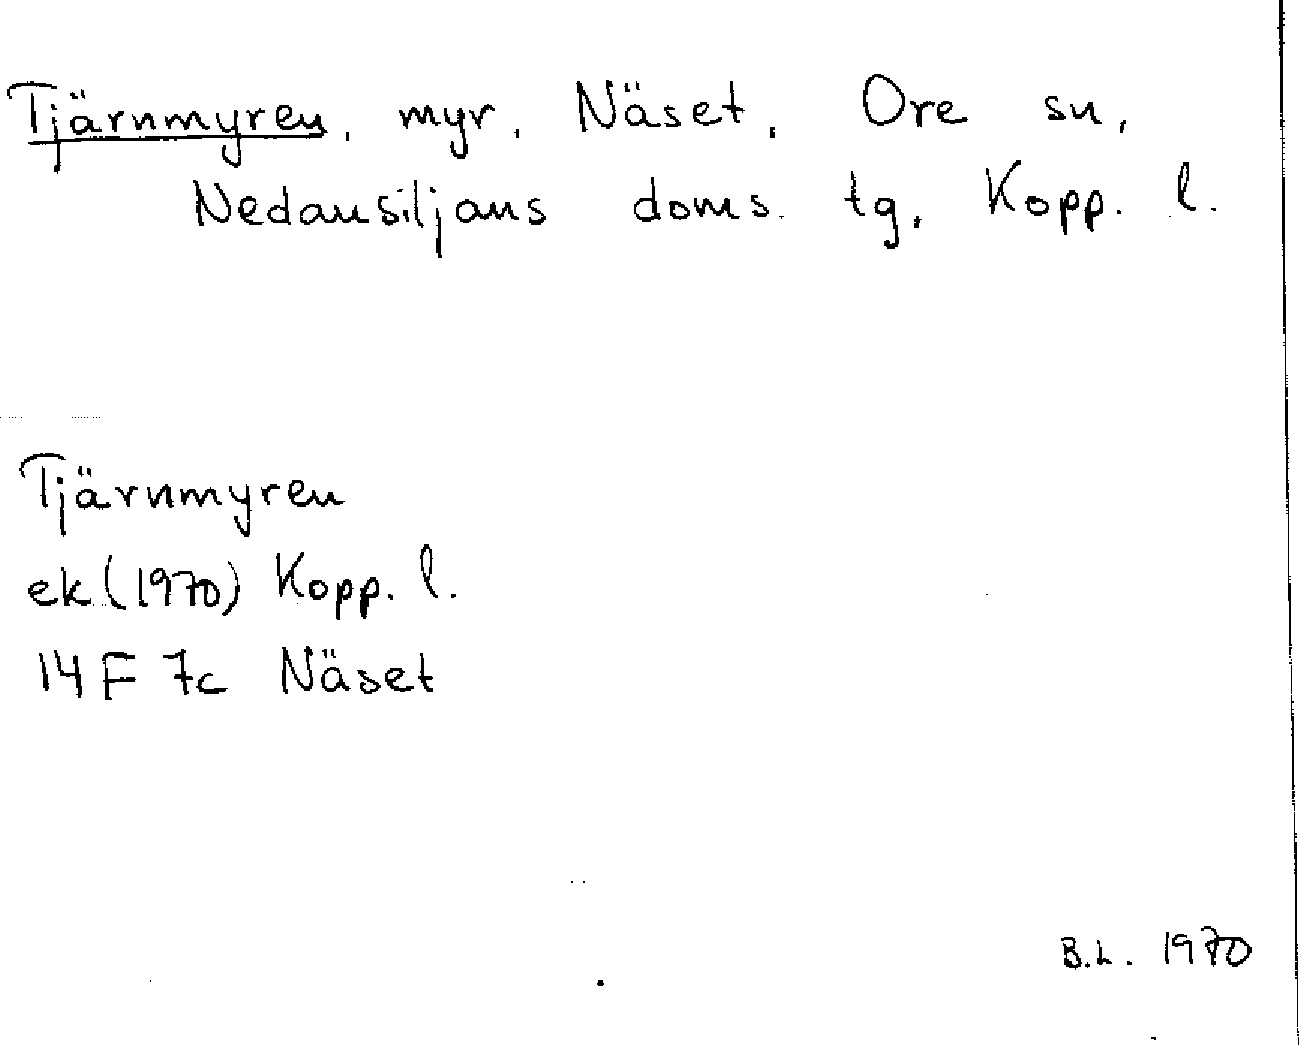 Tjärnmyren, myr, Näset, Ore sn,
Nedansiljans doms. tg, Kopp. l.
Tjärnmyren
ek (1970) Kopp. l.
14 F 7c Näset
B.L. 1970